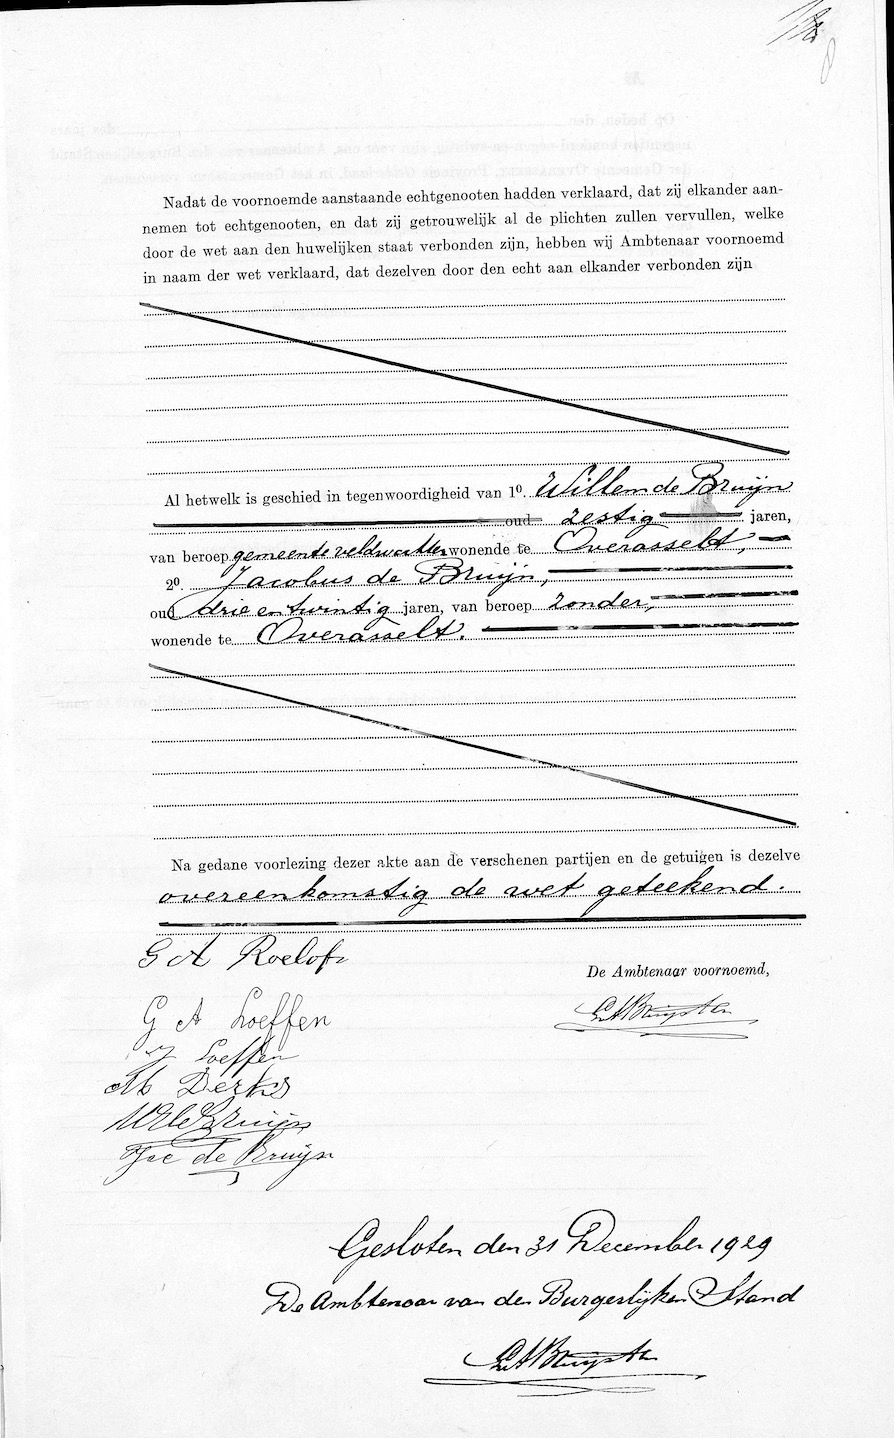 Nadat de voornoemde aanstaande echtgenooten hadden verklaard, dat zij elkander aan-
nemen tot echtgenooten, en dat zij getrouwelijk al de plichten zullen vervullen, welke
door de wet aan den huwelijken staat verbonden zijn, hebben wij Ambtenaar voornoemd
in naam der wet verklaard, dat dezelven door den echt aan elkander verbonden zijn
Al hetwelk is geschied in tegenwoordigheid van 1º. Willem de Bruijn
oud zestig jaren,
van beroep gemeente veldwachter wonende te Overasselt,
2º. Jacobus de Bruijn,
oud drie en twintig jaren, van beroep zonder,
wonende te Overasselt.
Na gedane voorlezing dezer akte aan de verschenen partijen en de getuigen is dezelve
overeenkomstig de wet geteekend.
G A Roelofs
De Ambtenaar voornoemd,
G A Loeffen
J Loeffen
Th Derks
W de Bruijn
Jac de Bruijn
Gesloten den 31 December 1929
De Ambtenaar van den Burgerlijken Stand